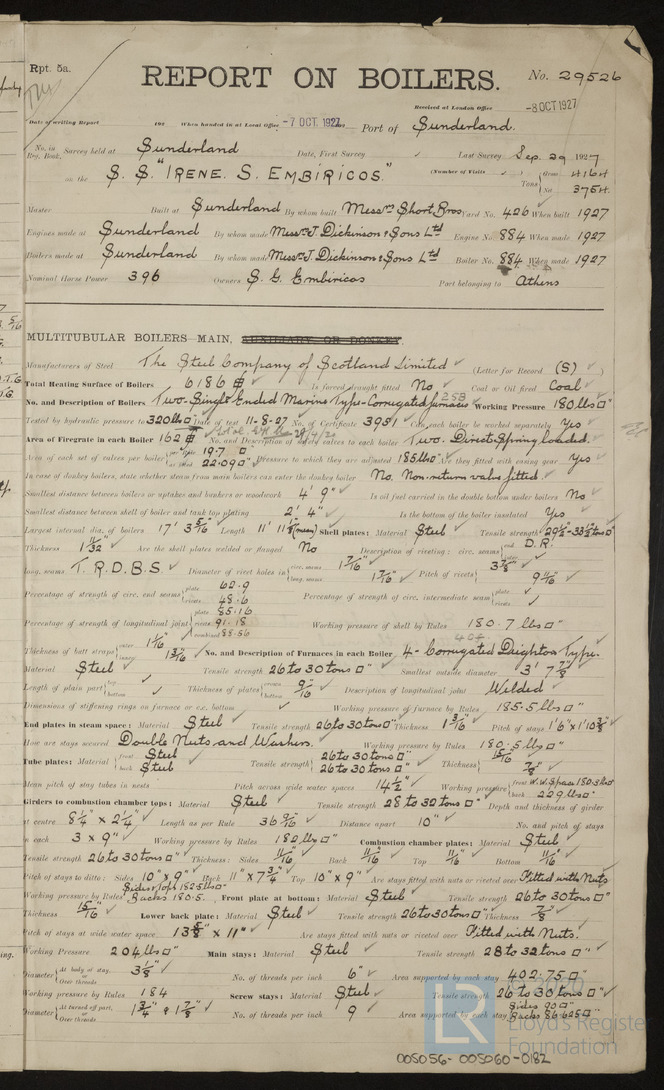 Rpt. 5a.
REPORT ON BOILERS.
No. 29526
Received at London Office -8 OCT 1927
Date of writing Report 192 When handed in at Local Office -7 OCT. 1927 Port of Sunderland.
No. in Reg. Book. Survey held at Sunderland Date, First Survey Last Survey Sep. 29 1927
on the S. S. "IRENE. S. EMBIRICOS." (Number of Visits ) Tons Gross 4164 Net 3754
Master Built at Sunderland By whom built Messrs Short Bros Yard No. 426 When built 1927
Engines made at Sunderland By whom made Messrs J. Dickinson & Sons Ltd Engine No. 884 When made 1927
Boilers made at Sunderland By whom made Messrs J. Dickinson & Sons Ltd Boiler No. 884 When made 1927
Nominal Horse Power 396 Owners S. G. Embiricos Port belonging to Athens
MULTITUBULAR BOILERS MAIN, AUXILIARY OR DONKEY.
Manufacturers of Steel The Steel Company of Scotland Limited (Letter for Record (S) )
Total Heating Surface of Boilers 6186 Is forced draught fitted No Coal or Oil fired Coal
No. and Description of Boilers Two. Single Ended Marine Type - Corrugated furnaces Working Pressure 180 lbs
Tested by hydraulic pressure to 320 lbs Date of test 11-8-27 No. of Certificate 3951 Can each boiler be worked separately Yes
Area of Firegrate in each Boiler 162 No. and Description of safety valves to each boiler Two. Direct Spring loaded.
Area of each set of valves per boiler per Rule 19.7 as fitted 22.09 Pressure to which they are adjusted 185 lbs Are they fitted with easing gear Yes
In case of donkey boilers, state whether steam from main boilers can enter the donkey boiler No. Non-return valve fitted.
Smallest distance between boilers or uptakes and bunkers or woodwork 4' 9" Is oil fuel carried in the double bottom under boilers No
Smallest distance between shell of boiler and tank top plating 2' 4" Is the bottom of the boiler insulated Yes
Largest internal dia. of boilers 17' 3 5/16" Length 11' 11 1/8" (mean) Shell plates: Material Steel Tensile strength 29½-33½ tons
Thickness 1 11/32" Are the shell plates welded or flanged No Description of riveting: circ. seams end D.R.
long. seams T. R. D. B. S. Diameter of rivet holes in circ. seams 1 7/16" long. seams 1 7/16" Pitch of rivets 3 7/8" 9 11/16"
Percentage of strength of circ. end seams plate 62.9 rivets 48.6 Percentage of strength of circ. intermediate seam plate rivets
Percentage of strength of longitudinal joint plate 85.16 rivets 91.18 combined 88.56 Working pressure of shell by Rules 180.7 lbs
Thickness of butt straps outer 1 1/16" inner 1 3/16" No. and Description of Furnaces in each Boiler 4 - Corrugated Deighton Type.
Material Steel Tensile strength 26 to 30 tons Smallest outside diameter 3' 7 7/8"
Length of plain part top bottom Thickness of plates crown bottom 9/16" Description of longitudinal joint Welded
Dimensions of stiffening rings on furnace or c.c. bottom Working pressure of furnace by Rules 185.5 lbs
End plates in steam space: Material Steel Tensile strength 26 to 30 tons Thickness 1 3/16" Pitch of stays 1'6" x 1'10 3/8"
How are stays secured Double Nuts and Washers. Working pressure by Rules 180.5 lbs
Tube plates: Material front Steel back Steel Tensile strength 26 to 30 tons 26 to 30 tons Thickness 15/16" 7/8"
Mean pitch of stay tubes in nests Pitch across wide water spaces 14½" Working pressure front W.W. Space 180.3 lbs back 229 lbs
Girders to combustion chamber tops: Material Steel Tensile strength 28 to 32 tons Depth and thickness of girder
at centre 8¼" x 2¼" Length as per Rule 36 9/16" Distance apart 10" No. and pitch of stays
in each 3 x 9" Working pressure by Rules 182 lbs Combustion chamber plates: Material Steel
Tensile strength 26 to 30 tons Thickness: Sides 11/16" Back 11/16" Top 11/16" Bottom 11/16"
Pitch of stays to ditto: Sides 10" x 9" Back 11" x 7¾" Top 10" x 9" Are stays fitted with nuts or riveted over Fitted with Nuts
Working pressure by Rules Sides & tops 182.5 lbs Backs 180.5 Front plate at bottom: Material Steel Tensile strength 26 to 30 tons
Thickness 15/16" Lower back plate: Material Steel Tensile strength 26 to 30 tons Thickness 7/8"
Pitch of stays at wide water space 13 5/8" x 11" Are stays fitted with nuts or riveted over Fitted with Nuts.
Working Pressure 204 lbs Main stays: Material Steel Tensile strength 28 to 32 tons
Diameter At body of stay, or Over threads 3 1/8" No. of threads per inch 6" Area supported by each stay 402.75
Working pressure by Rules 184 Screw stays: Material Steel Tensile strength 26 to 30 tons
Diameter At turned off part, or Over threads 1¾" & 1 7/8" No. of threads per inch 9 Area supported by each stay Sides 90 Backs 86.625
© 2020
LR
Lloyd's Register
Foundation
005056-005060-0182